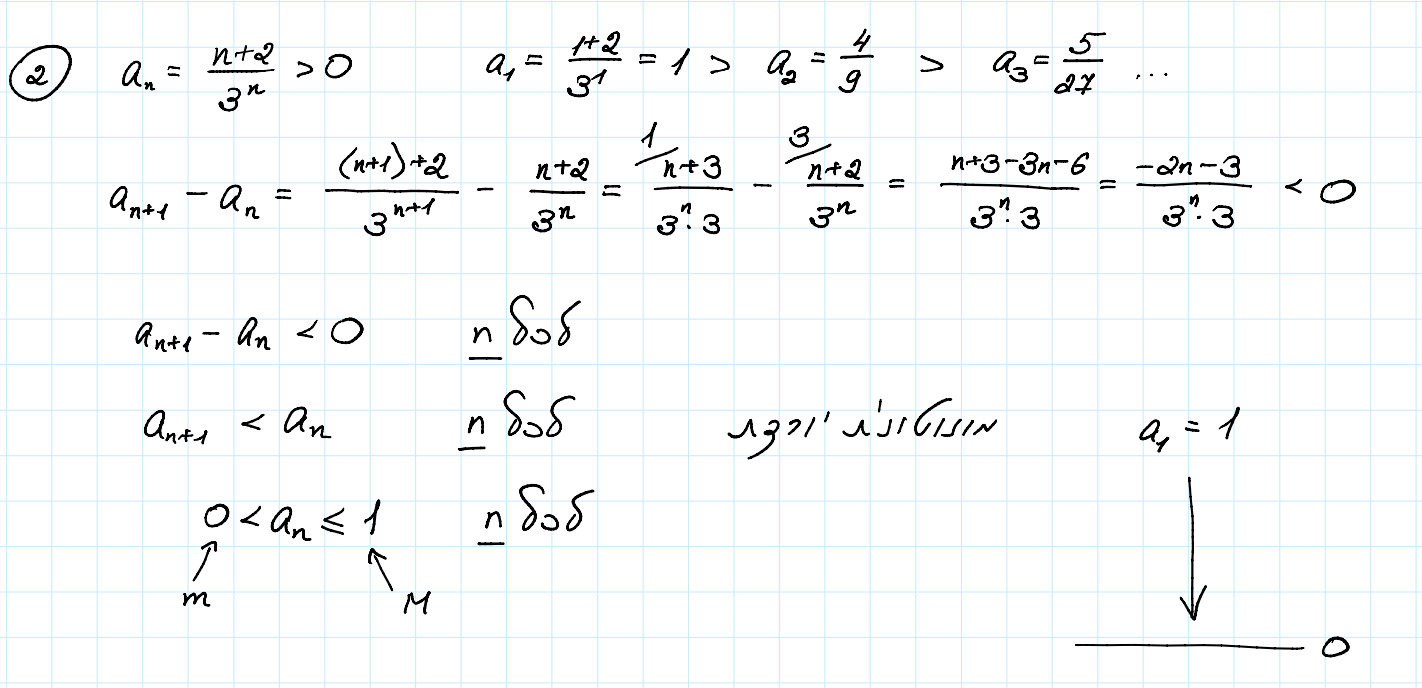 ② aₙ = (n+2)/3ⁿ > 0   a₁ = (1+2)/3¹ = 1 > a₂ = 4/9 > a₃ = 5/27 ...
aₙ₊₁ - aₙ = ((n+1)+2)/3ⁿ⁺¹ - (n+2)/3ⁿ = ¹⁄ (n+3)/(3ⁿ·3) - ³⁄ (n+2)/3ⁿ = (n+3-3n-6)/(3ⁿ·3) = (-2n-3)/(3ⁿ·3) < 0
aₙ₊₁ - aₙ < 0   לכל n
aₙ₊₁ < aₙ   לכל n   מונוטונית יורדת   a₁ = 1
0 < aₙ ≤ 1   לכל n
m   M
0